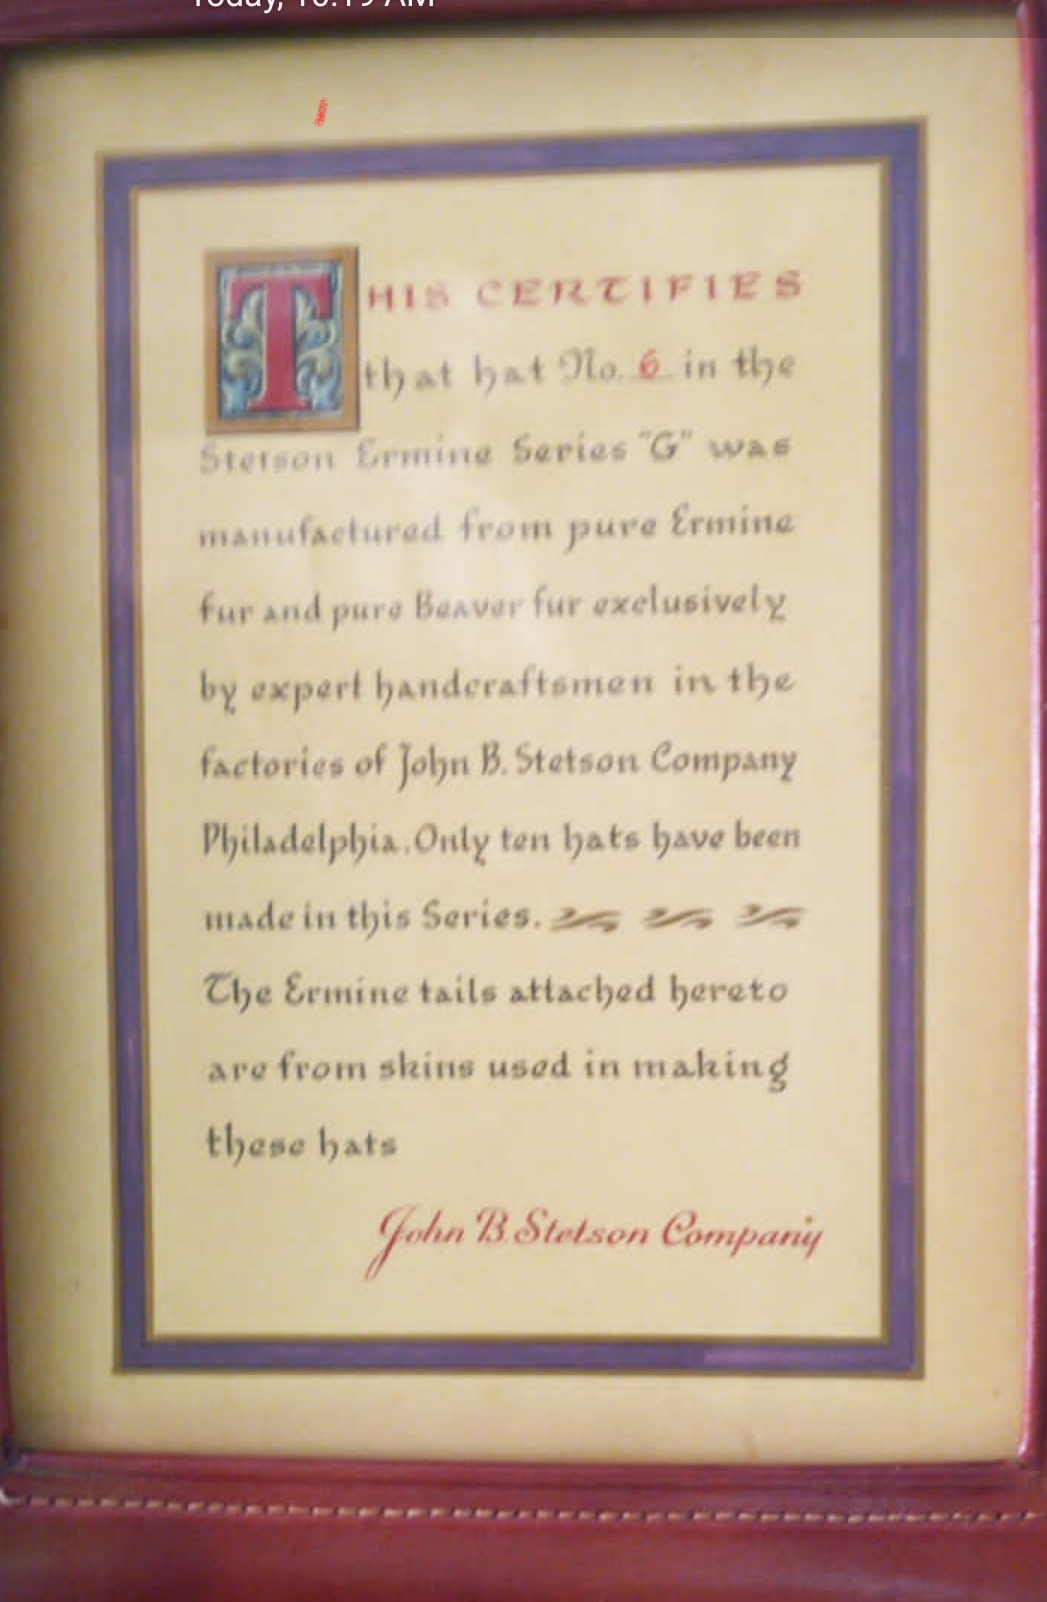 Today, 10:19 AM
THIS CERTIFIES
that hat No. 6 in the
Stetson Ermine Series "G" was
manufactured from pure Ermine
fur and pure Beaver fur exclusively
by expert handcraftsmen in the
factories of John B. Stetson Company
Philadelphia. Only ten hats have been
made in this Series.
The Ermine tails attached hereto
are from skins used in making
these hats
John B. Stetson Company